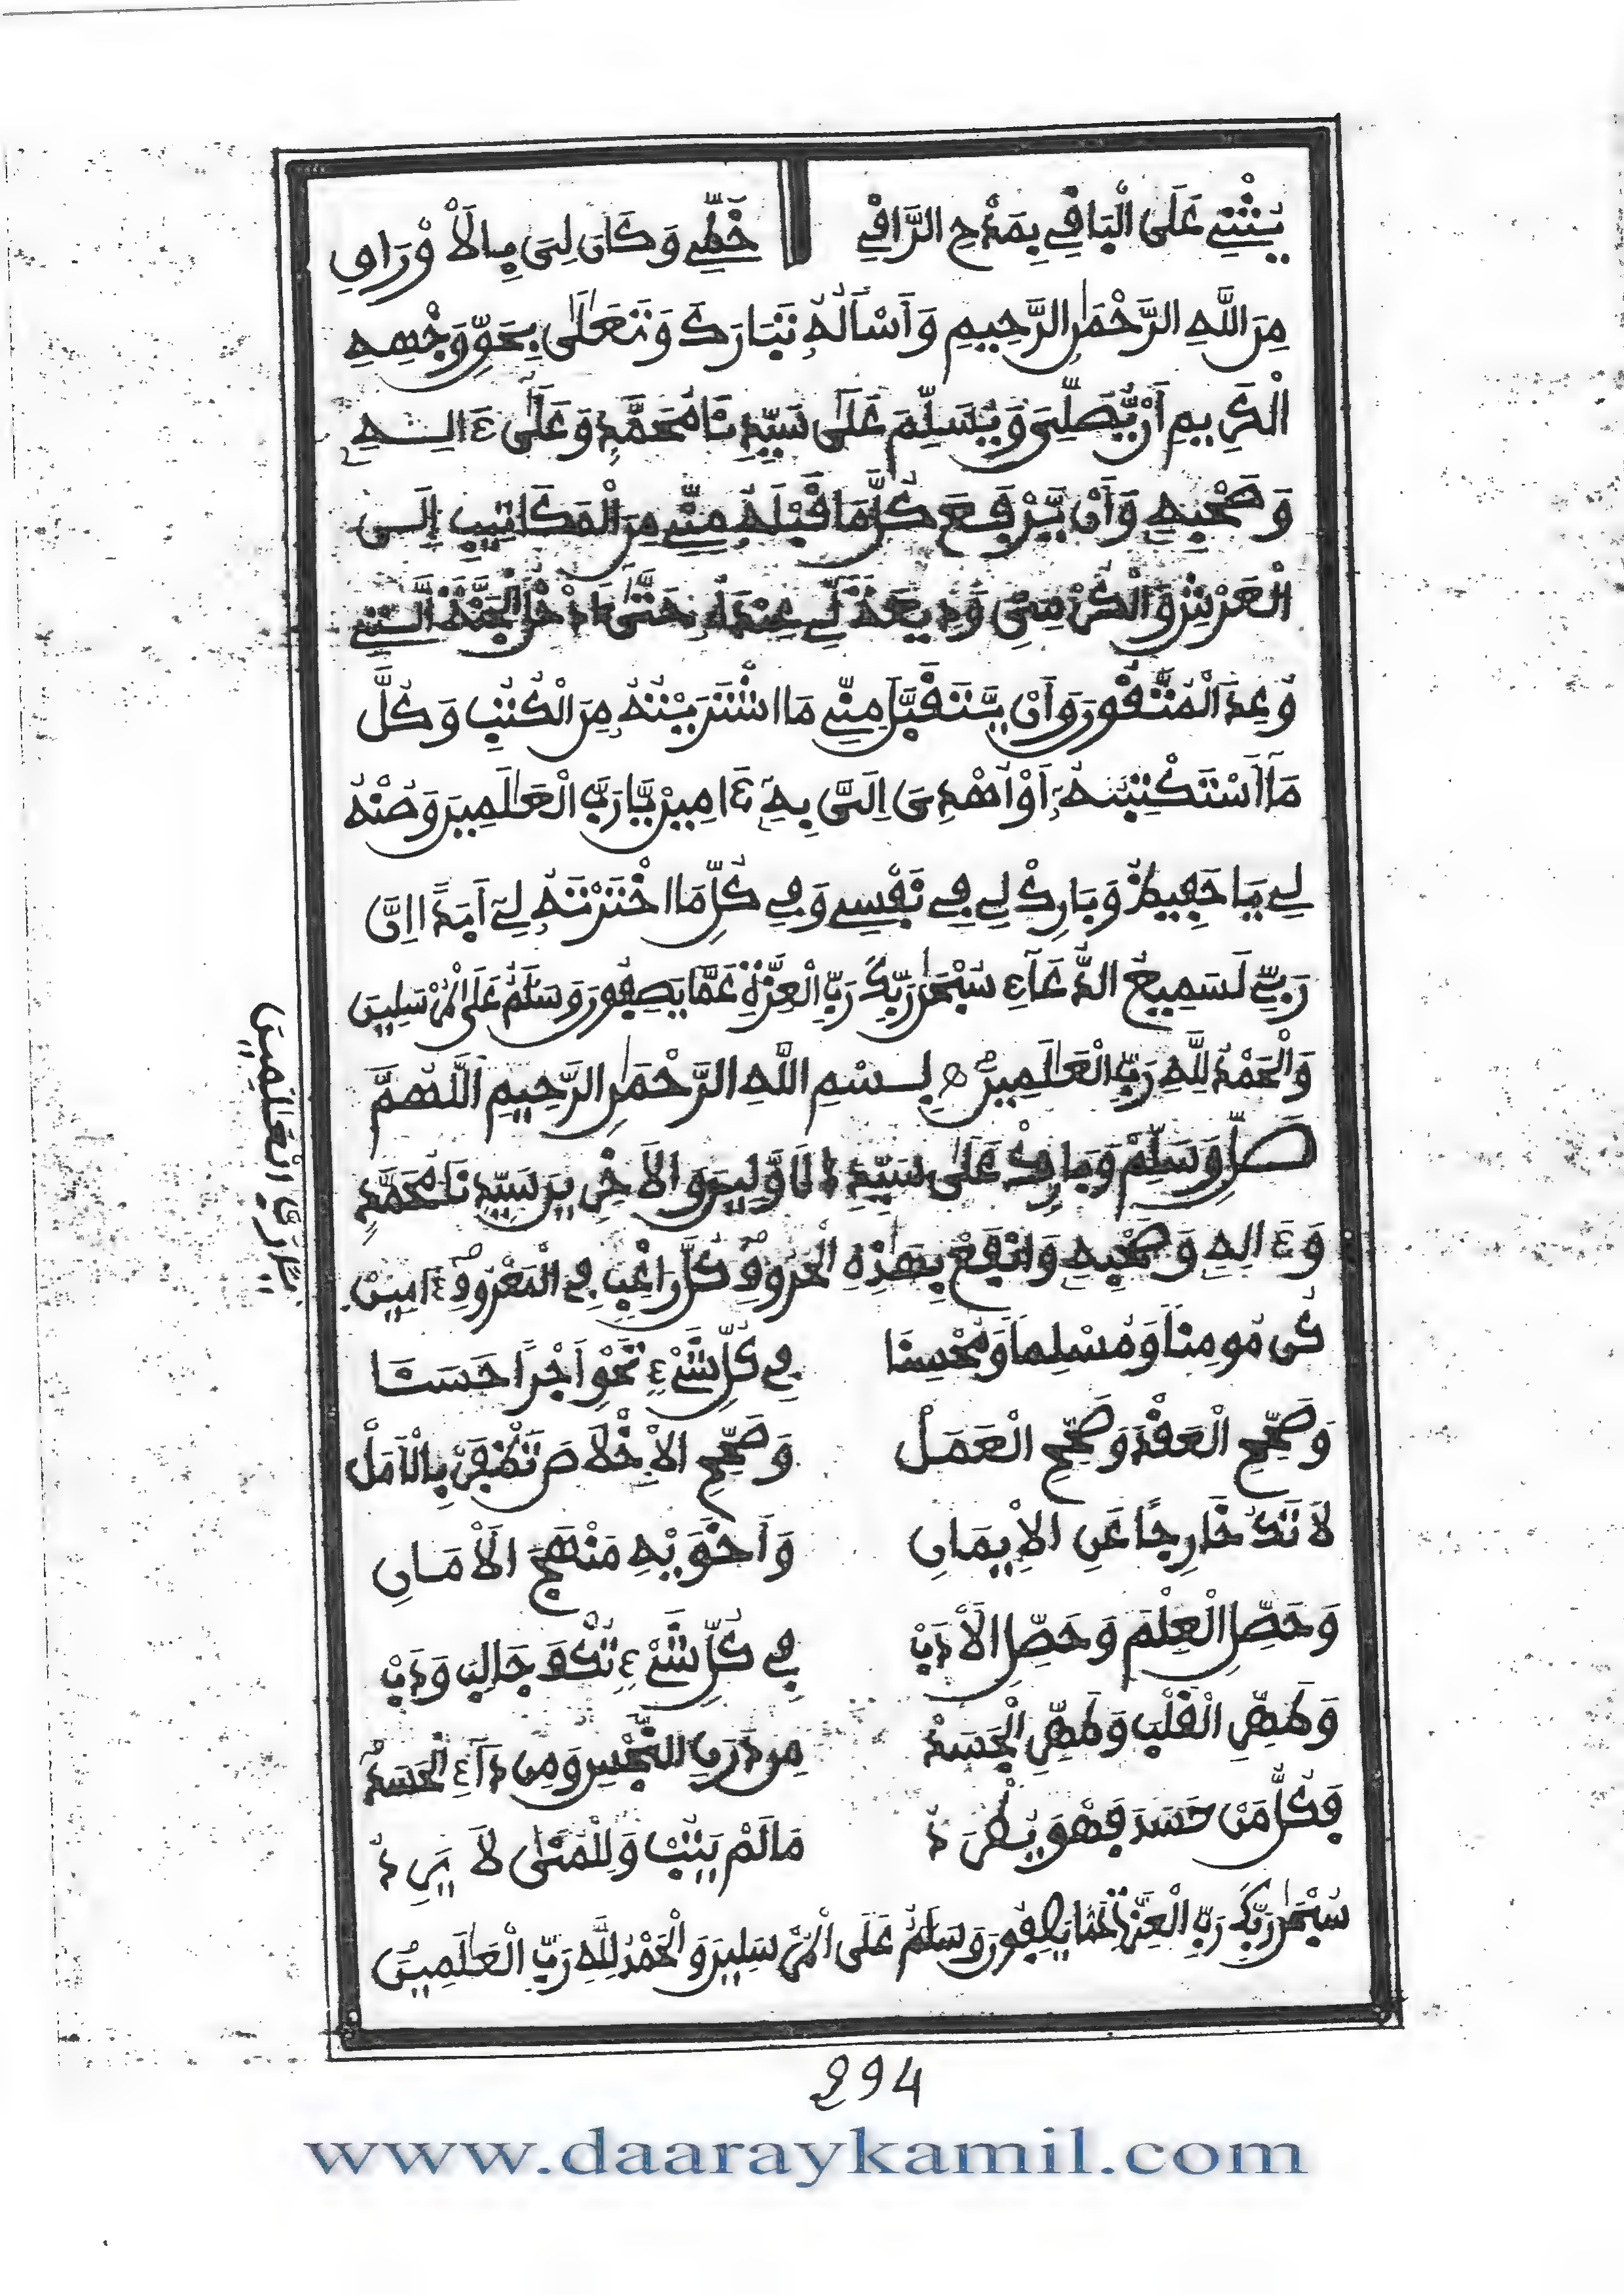 يُثْنِي عَلَى الْبَاقِي بِمَدْحِ الرَّاقِي خَطِّي وَكَانَ لِي بِالَأوْرَاقِ
مِنَ اللَّهِ الرَّحْمَٰنِ الرَّحِيمِ وَأَسْأَلُهُ تَبَارَكَ وَتَعَٰلَى بِحَقِّ وَجْهِهِ
الْكَرِيمِ أَنْ يُّصَلِّيَ وَيُسَلِّمَ عَلَى سَيِّدِنَا مُحَمَّدٍ وَعَلَى ءَالِهِ
وَصَحْبِهِ وَأَنْ يَّرْفَعَ كُلَّ مَا قَبْلَهُ مِنِّي مِنَ الْمَكَاتِيبِ إِلَى
الْعَرْشِ وَالْكُرْسِيِّ وَدِيعَةً لِي عِنْدَهُ حَتَّى أَدْخُلَ الْجَنَّةَ الَّتِي
وُعِدَ الْمُتَّقُونَ وَأَنْ يَّتَقَبَّلَ مِنِّي مَا اشْتَرَيْتُهُ مِنَ الْكُتُبِ وَكُلَّ
مَا أَسْتَكْتَبْتُهُ أَوْ أُهْدِيَ إِلَيَّ بِهِ ءَامِينَ يَا رَبَّ الْعَٰلَمِينَ وَصُنْهُ
لِي يَا حَفِيظُ وَبَارِكْ لِي فِي نَفْسِي وَفِي كُلِّ مَا اخْتَرْتَهُ لِي أَبَدًا إِنَّ
رَبِّي لَسَمِيعُ الدُّعَآءِ سُبْحَٰنَ رَبِّكَ رَبِّ الْعِزَّةِ عَمَّا يَصِفُونَ وَسَلَٰمٌ عَلَى الْمُرْسَلِينَ
وَالْحَمْدُ لِلَّهِ رَبِّ الْعَٰلَمِينَ بِسْمِ اللَّهِ الرَّحْمَٰنِ الرَّحِيمِ اللَّهُمَّ
صَلِّ وَسَلِّمْ وَبَارِكْ عَلَى سَيِّدِ الَأوَّلِينَ وَالَأخِرِينَ سَيِّدِنَا مُحَمَّدٍ
وَءَالِهِ وَصَحْبِهِ وَانْفَعْ بِهَٰذِهِ الْحُرُوفِ كُلَّ رَاغِبٍ فِي الْمَعْرُوفِ ءَامِينَ
يَا رَبَّ الْعَٰلَمِينَ
كُنْ مُومِنًا وَمُسْلِمًا وَمُحْسِنَا فِي كُلِّ شَيْءٍ تَحْوِ أَجْرًا حَسَنَا
وَصَحِّحِ الْعَقْدَ وَصَحِّحِ الْعَمَلْ وَصَحِّحِ الِإخْلَاصَ تَظْفَرْ بِالَأمَلْ
لَا تَكُ خَارِجًا عَنِ الِإيمَانِ وَ مَنْهَجَ الَأمَانِ
وَحَصِّلِ الْعِلْمَ وَحَصِّلِ الَأدَبْ فِي كُلِّ شَيْءٍ جَالِبُ وَدَبْ
وَطَهِّرِ الْقَلْبَ وَطَهِّرِ الْجَسَدْ مِنْ دَرَنِ النَّجْسِ وَمِنْ دَآءِ الْحَسَدْ
فَكُلُّ مَنْ حَسَدَ فَهْوَ يُطْرَدُ مَا لَمْ يَتُبْ وَلِلْمُنَى لَا يَرِدُ
سُبْحَٰنَ رَبِّكَ رَبِّ الْعِزَّةِ عَمَّا يَصِفُونَ وَسَلَٰمٌ عَلَى الْمُرْسَلِينَ وَالْحَمْدُ لِلَّهِ رَبِّ الْعَٰلَمِينَ
294
www.daaraykamil.com